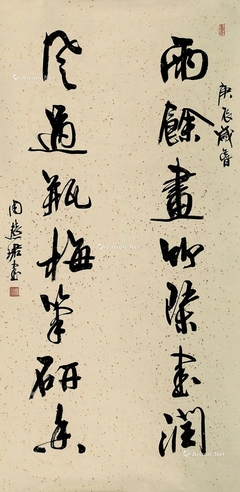 庚辰歲
雨餘畫竹書潤
風過瓶梅筆研香
周慧珺書